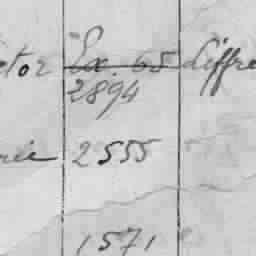 ctor Ex. 65 Liffre
2894
rée 2555
1571